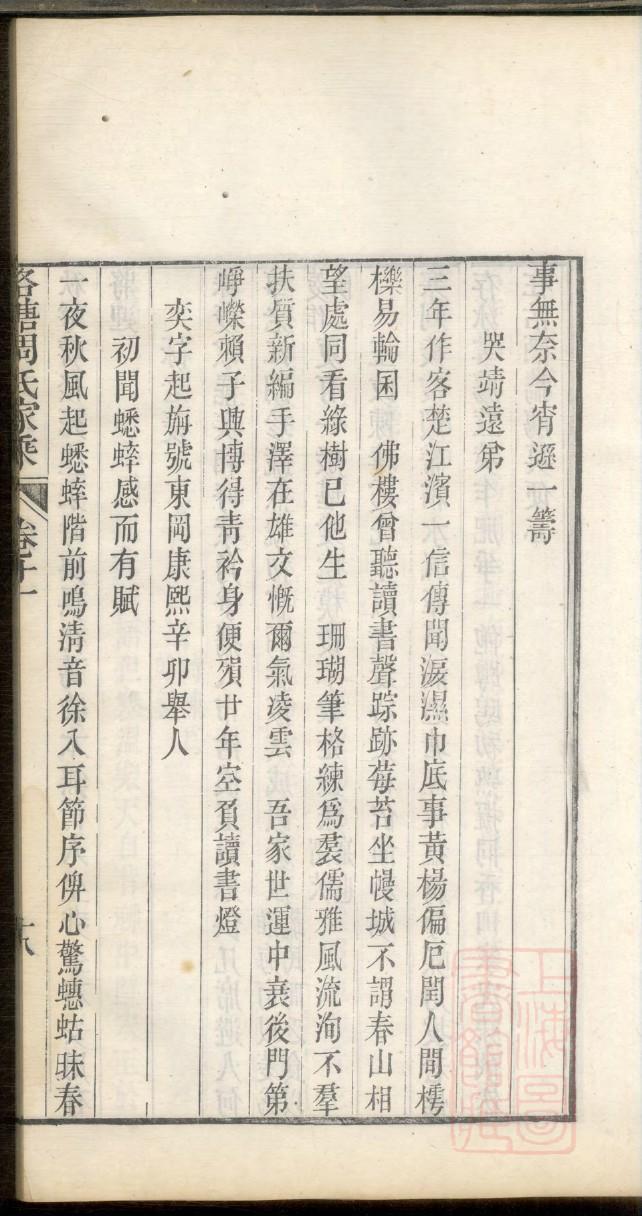 事無奈今宵遜一籌
哭靖遠弟
三年作客楚江濱一信傳聞淚濕巾底事黃楊偏厄閏人間樗
櫟易輪囷　佛樓曾聽讀書聲踪跡莓苔坐幔城不謂春山相
望處同看綠樹已他生　珊瑚筆格練為裠儒雅風流洵不羣
扶質新編手澤在雄文慨爾氣凌雲　吾家世運中衰後門第
崢嶸賴子興博得青衿身便殞廿年空負讀書燈
奕字起旃號東岡康熙辛卯舉人
初聞蟋蟀感而有賦
一夜秋風起蟋蟀階前鳴清音徐入耳節序俾心驚蟪蛄昧春
洛塘周氏家乘　卷十一　十八
上海圖書館藏